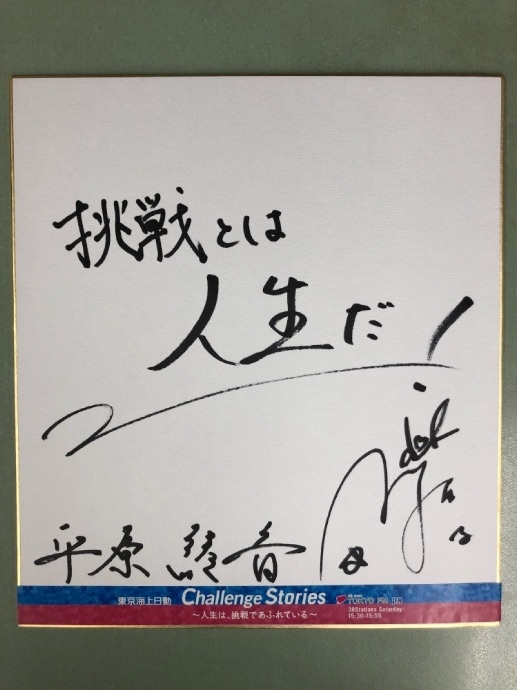 挑戦とは
人生だ!
平原 綾香
東京海上日動 Challenge Stories
～人生は、挑戦であふれている～
TOKYO FM
38Stations Saturday
15:30-15:55